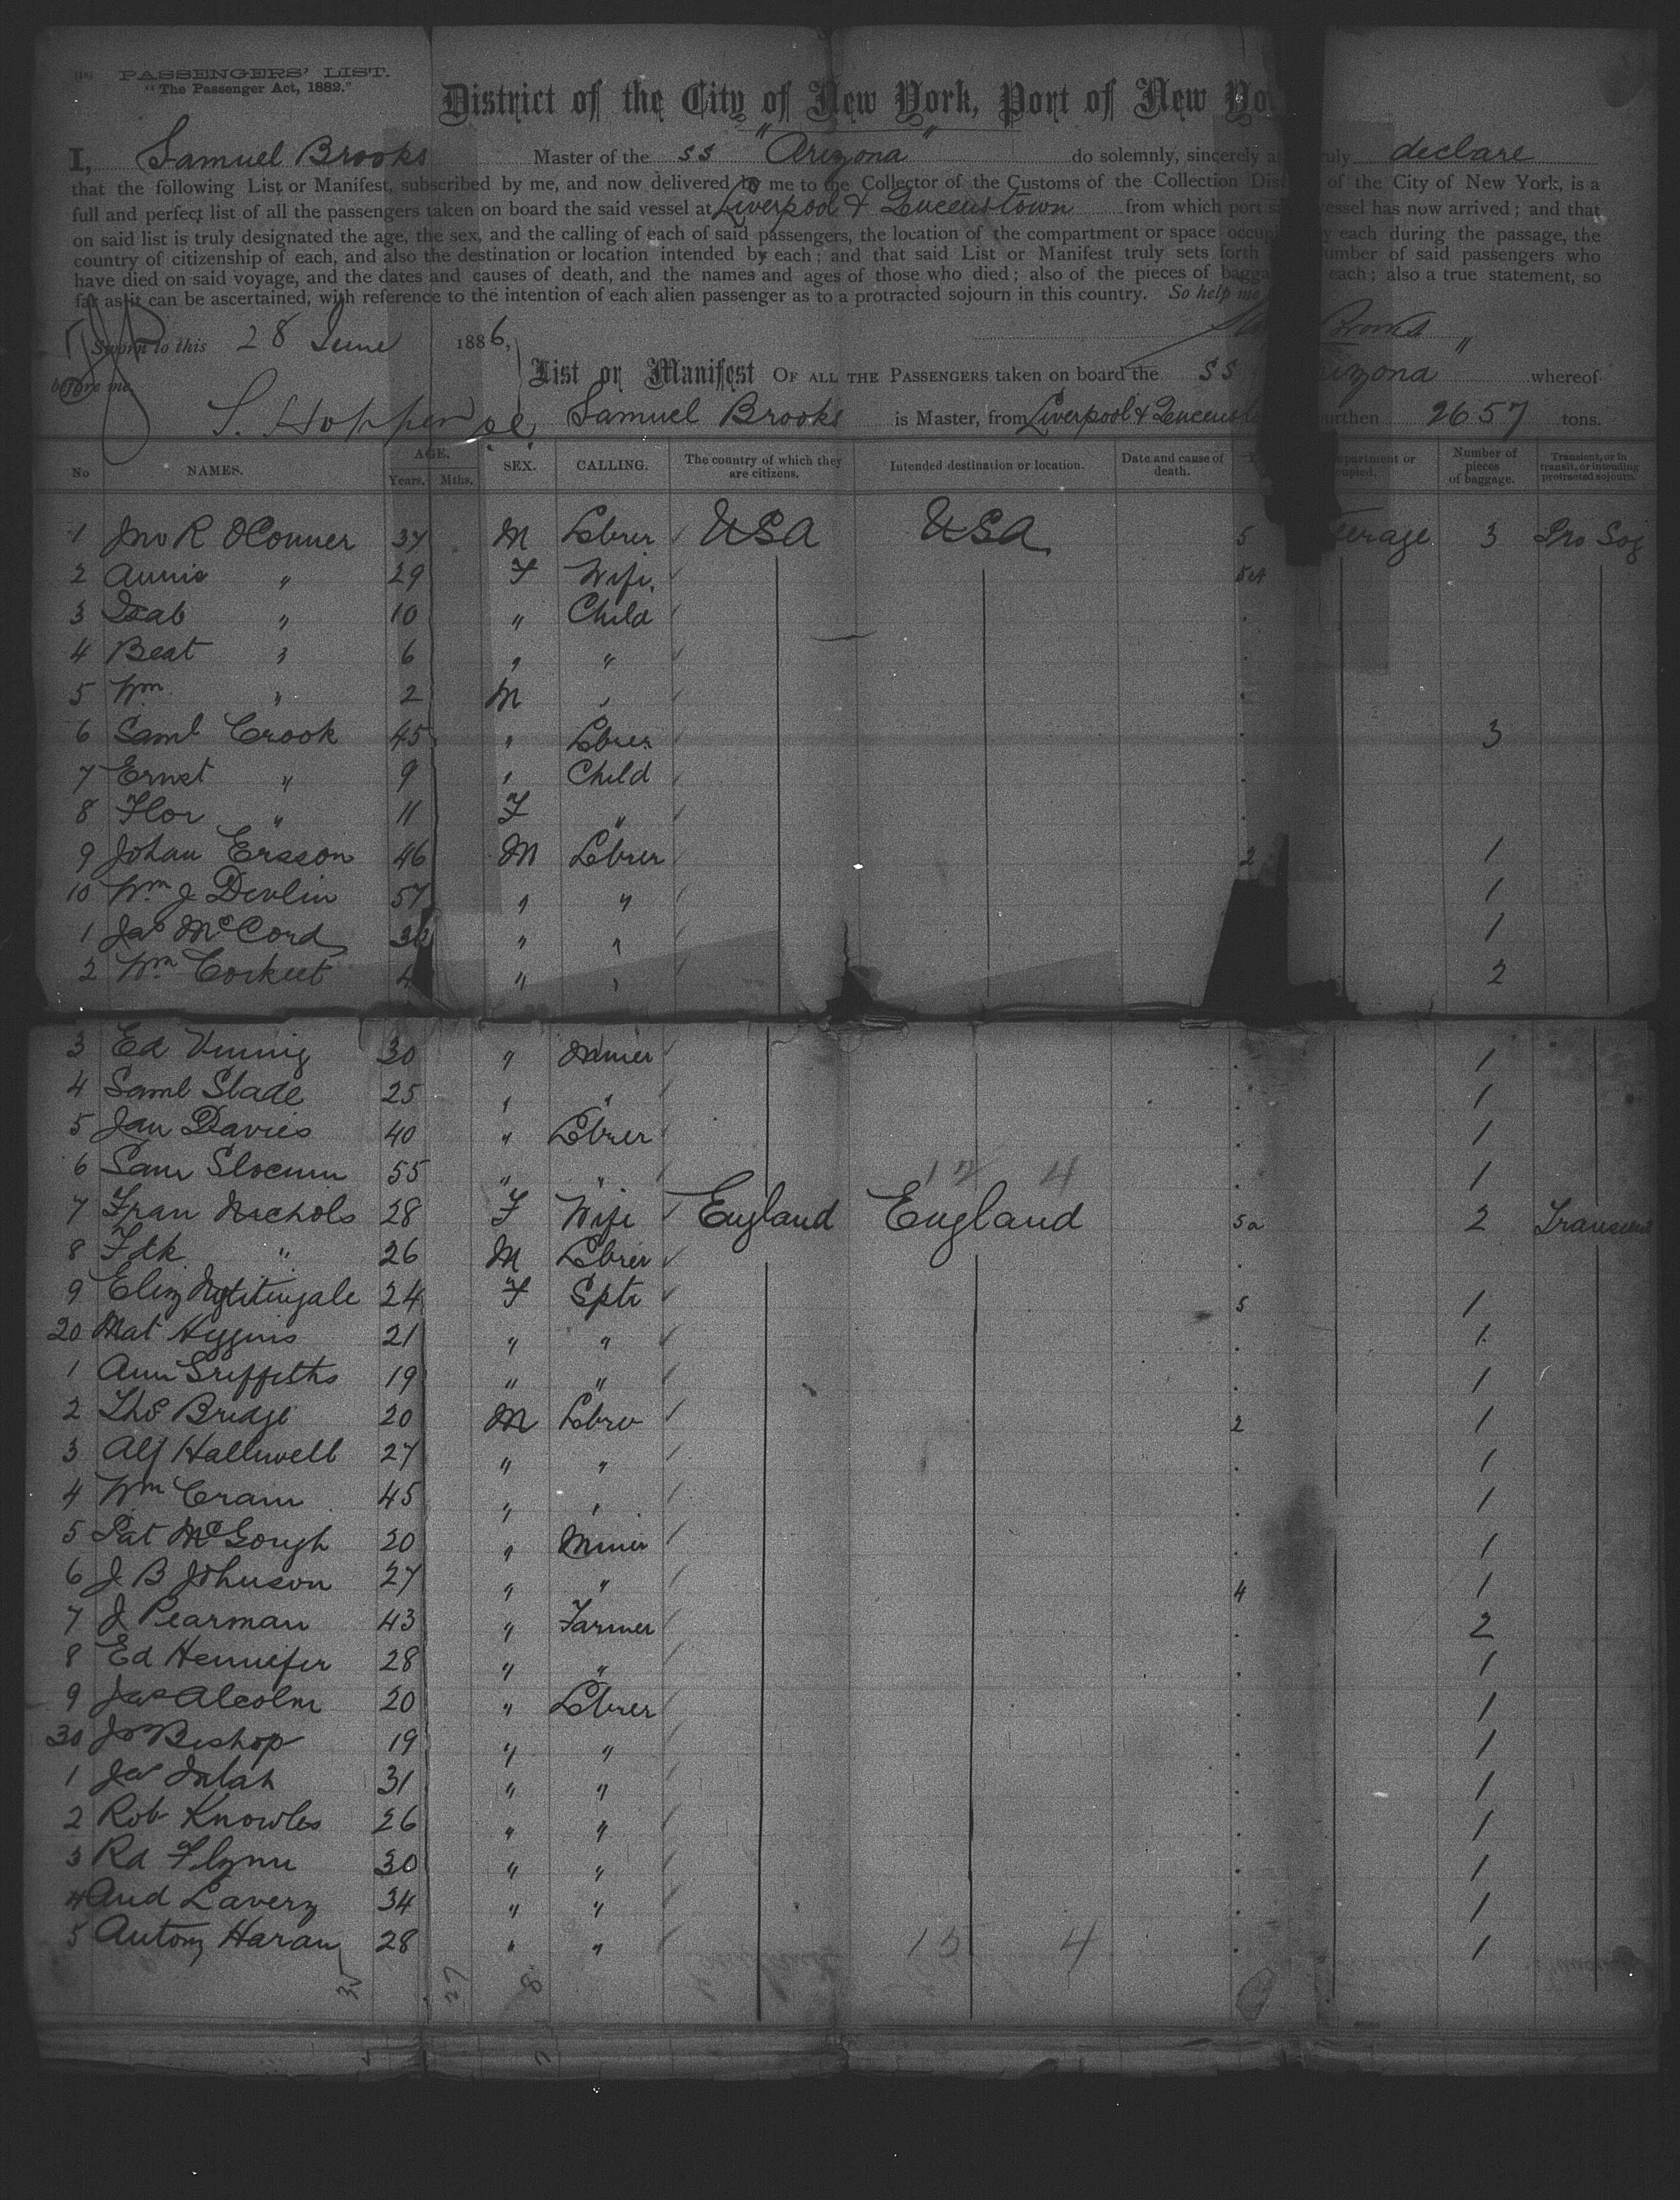 PASSENGERS' LIST.
"The Passenger Act, 1882."
District of the City of New York, Port of New Yo
I, Samuel Brooks Master of the SS "Arizona" do solemnly, sincerely a ruly declare
that the following List or Manifest, subscribed by me, and now delivered by me to the Collector of the Customs of the Collection Dis of the City of New York, is a
full and perfect list of all the passengers taken on board the said vessel at Liverpool & Queenstown from which port sa essel has now arrived; and that
on said list is truly designated the age, the sex, and the calling of each of said passengers, the location of the compartment or space occupi y each during the passage, the
country of citizenship of each, and also the destination or location intended by each; and that said List or Manifest truly sets forth umber of said passengers who
have died on said voyage, and the dates and causes of death, and the names and ages of those who died; also of the pieces of bagga each; also a true statement, so
far as it can be ascertained, with reference to the intention of each alien passenger as to a protracted sojourn in this country. So help me
Sworn to this 28 June 1886, Brooks
before me
List or Manifest OF ALL THE PASSENGERS taken on board the SS rizona " whereof
S. Hopper Samuel Brooks is Master, from Liverpool & Queensto urthen 2657 tons.
No NAMES. AGE. Years. Mths. SEX. CALLING. The country of which they are citizens. Intended destination or location. Date and cause of death. partment or cupied. Number of pieces of baggage. Transient, or in transit, or intending protracted sojourn.
1 Jno R OConner 37 M Lebrer USA USA 5 teerage 3 Pro Soj
2 Annie " 29 F Wife
3 Isab " 10 " Child
4 Beat " 6 " "
5 Wm " 2 M "
6 Saml Crook 45 " Lebrer 3
7 Ernst " 9 " Child
8 Flor " 11 F "
9 Johan Ersson 46 M Lebrer 2 1
10 Wm J Devlin 57 " " 1
1 Jas McCord " " 1
2 Wm Corkeet 4 " " 2
3 Ed Vining 30 " Miner 1
4 Saml Slade 25 " " 1
5 Jan Davies 40 " Lebrer 1
6 Sam Slocum 55 " " 1
7 Fran Nichols 28 F Wife England England 5a 2 Transient
8 Fdk " 26 M Lebrer
9 Eliz Nightingale 24 F Sptr 5 1
20 Mat Higgins 21 " " 1
1 Ann Griffiths 19 " " 1
2 Thos Bridge 20 M Lebrer 2 1
3 Alf Halliwell 27 " " 1
4 Wm Cram 45 " " 1
5 Pat McGough 20 " Miner 1
6 J B Johnson 27 " " 4 1
7 J Pearman 43 " Farmer 2
8 Ed Hennefer 28 " " 1
9 Jas Alcolm 20 " Lebrer 1
30 Jo Bishop 19 " " 1
1 Jas 31 " " 1
2 Rob Knowles 26 " " 1
3 Rd Flynn 30 " " 1
4 And Lavery 34 " " 1
5 Antony Haran 28 " " 1